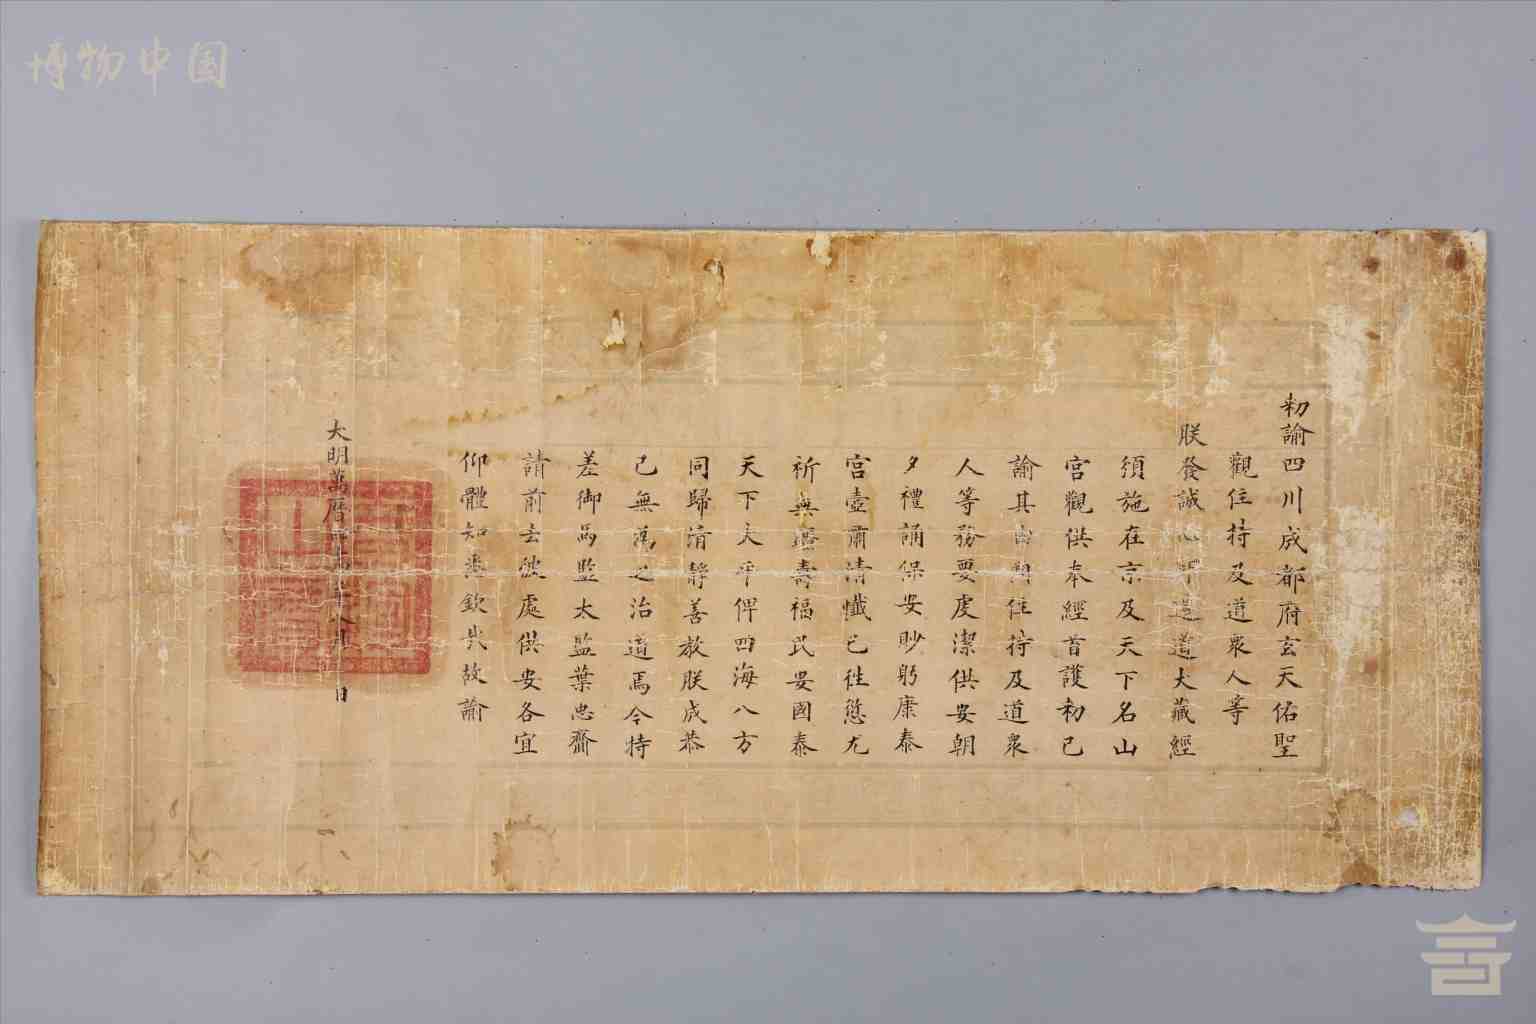 博物中国
勑諭四川成都府玄天佑聖
觀住持及道衆人等
朕發誠心印造道大藏經
須施在京及天下名山
宮觀供奉經首護勑已
諭其由爾住持及道衆
人等務要虔潔供安朝
夕禮誦保安眇躬康泰
宮壼肅清懺已徃愆尤
祈無疆壽福民安國泰
天下太平俾四海八方
同歸清靜善教朕成恭
己無為之治道焉今特
差御馬監太監葉忠齎
請前去彼處供安各宜
仰體知悉欽哉故諭
大明萬曆 年八月 日